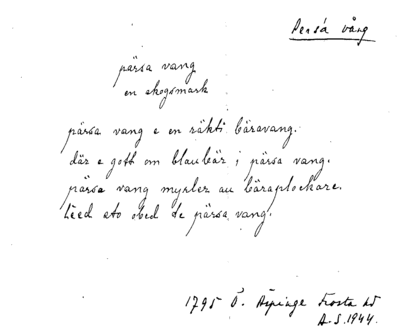 Persa vång
pärsa vang
en skogsmark
pärsa vang e en räkti bäravang.
där e gott om blaubär i pärsa vang.
pärsa vang myrlez au bäraplockare.
de pärsa vang.
1795 Ö. Äspinge Frosta hd
A.S. 1944.